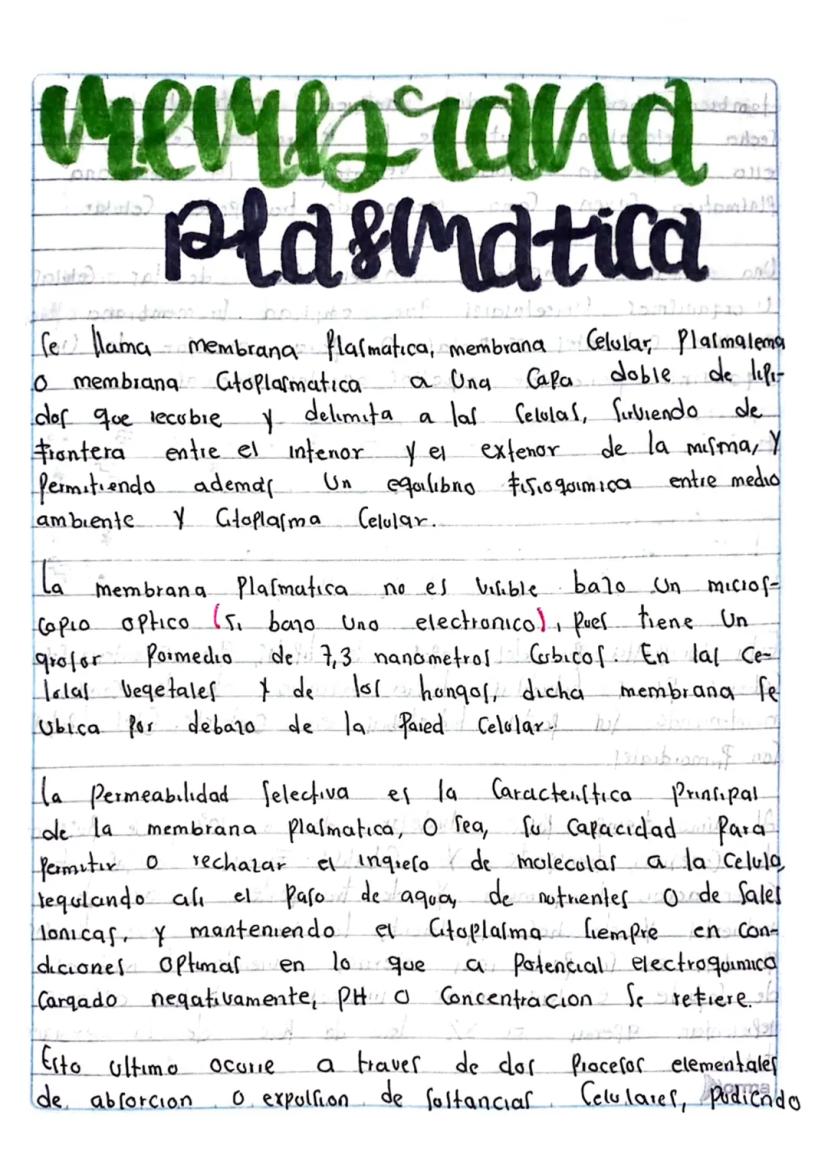 membrana
plasmatica
Se llama membrana Plasmatica, membrana Celular, Plasmalema
o membrana Citoplasmatica a Una Capa doble de lipi-
dos que recubre y delimita a las Celulas, Sirviendo de
frontera entre el interior y el exterior de la misma, y
Permitiendo ademas Un equilibrio fisioquimica entre medio
ambiente y Citoplasma Celular.
La membrana Plasmatica no es Visible bajo Un micros-
copio optico (si bajo Uno electronico), Pues tiene Un
grosor Poimedio de 7,3 nanometros Cubicos. En las Ce-
lulas Vegetales y de los hongos, dicha membrana Se
Ubica Por debajo de la Pared Celular.
La Permeabilidad Selectiva es la Caracteristica Prinsipal
de la membrana Plasmatica, O sea, Su Capacidad Para
Permitir o rechazar el ingreso de moleculas a la Celula,
regulando asi el Paso de agua, de nutrientes O de Sales
Ionicas, y manteniendo el Citoplasma Siempre en Con-
diciones Optimas en lo que a Potencial electroquimico
Cargado negativamente, PH O Concentracion Se refiere.
Esto ultimo ocurre a traves de dos Procesos elementales
de absorcion o expulsion de Sustancias Celulares, pudiendo
Norma